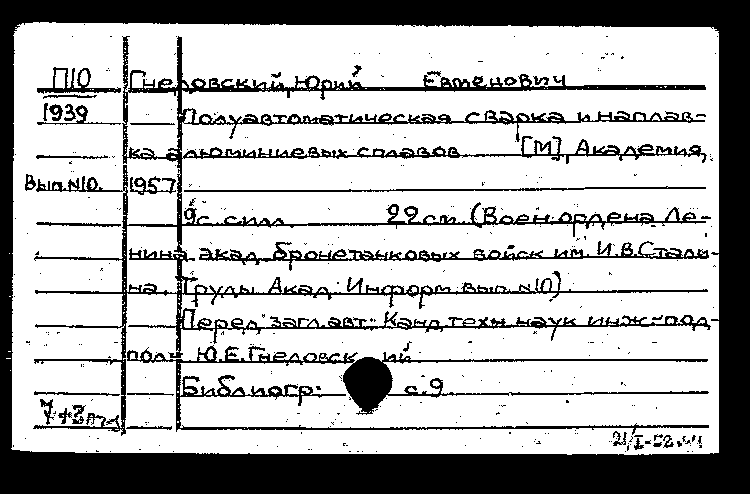 П10 Гнедовский, Юрий Евменович
1939 Полуавтоматическая сварка и наплав-
ка алюминиевых сплавов [М], Академия,
Вып. №10. 1957
9 с. с илл. 22 см. (Воен. ордена Ле-
нина акад. бронетанковых войск им. И.В.Стали-
на. Труды Акад. Информ. вып. №10).
Перед загл. авт.: Канд. техн. наук инж.-под-
полк. Ю.Е.Гнедовский
Библиогр: с.9